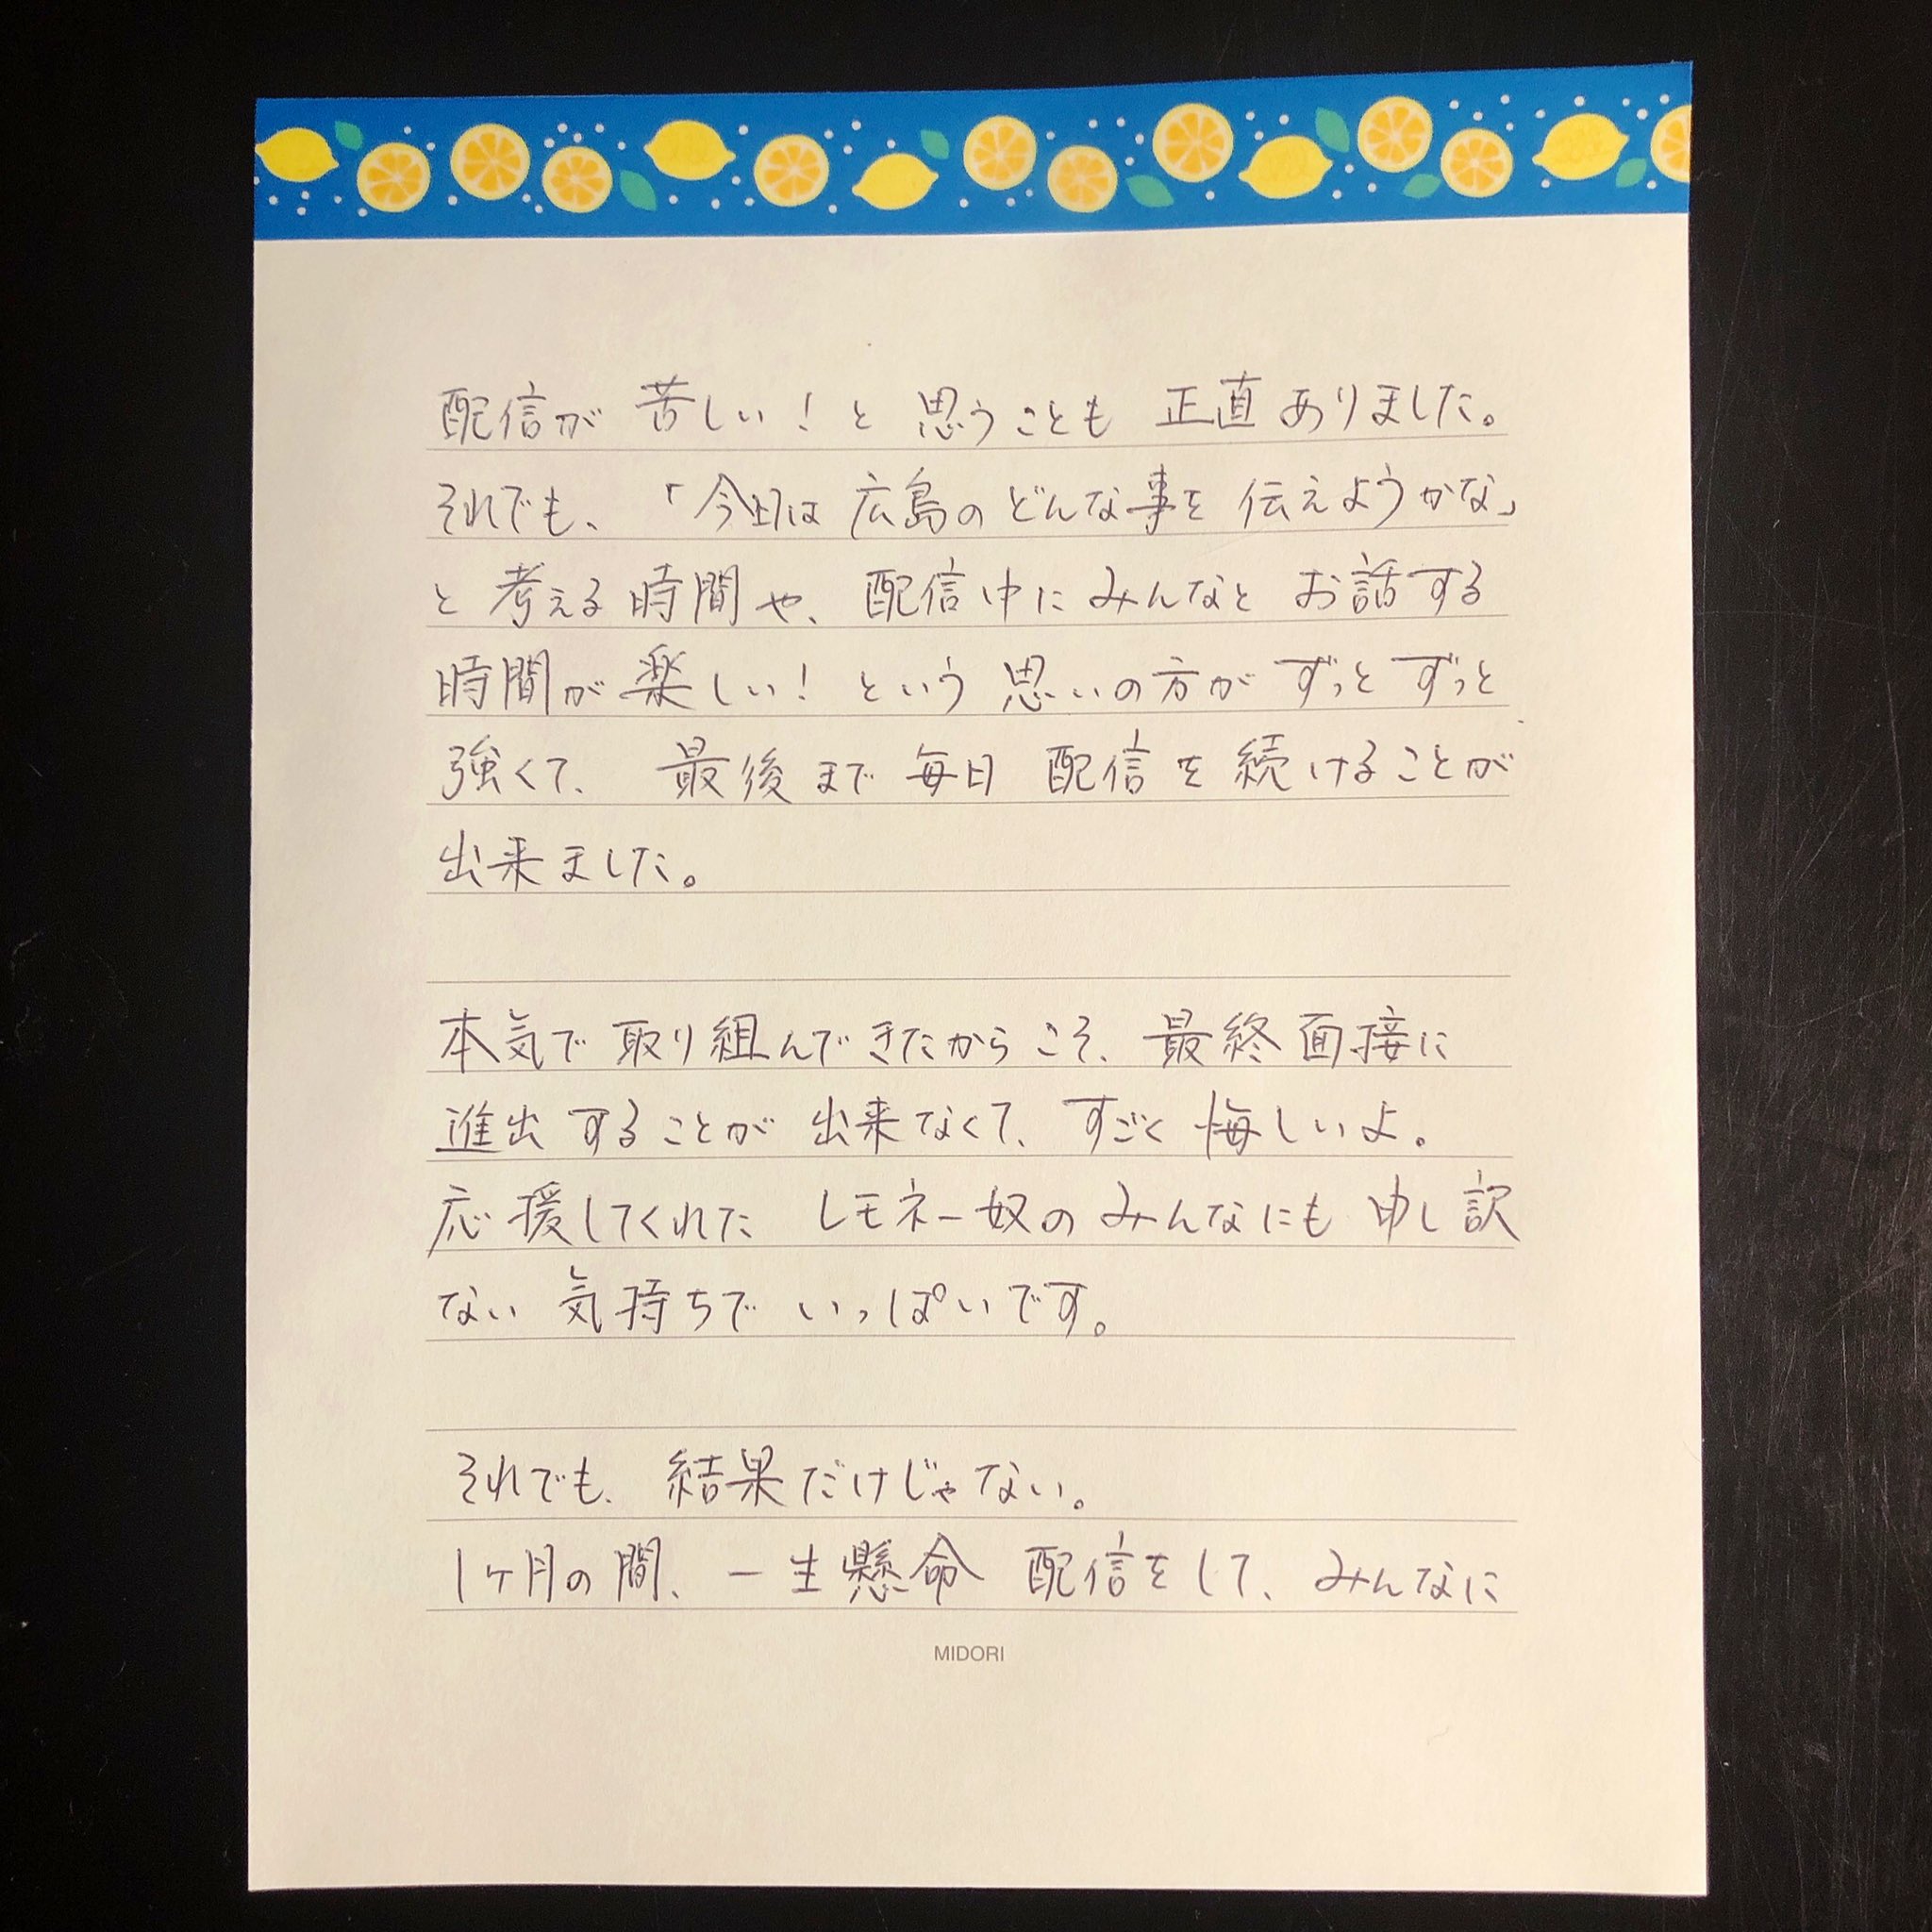 配信が 苦しい！と 思うことも 正直ありました。
それでも、「今日は 広島の どんな事を 伝えようかな」
と 考える 時間や、配信中に みんなと お話する
時間が 楽しい！という 思いの方が ずっと ずっと
強くて、最後まで 毎日 配信を 続けることが
出来ました。
本気で 取り組んできたからこそ、最終面接に
進出することが 出来なくて、すごく 悔しいよ。
応援してくれた レモネー奴の みんなにも 申し訳
ない 気持ちで いっぱいです。
それでも、結果だけじゃない。
1ヶ月の間、一生懸命 配信をして、みんなに
MIDORI